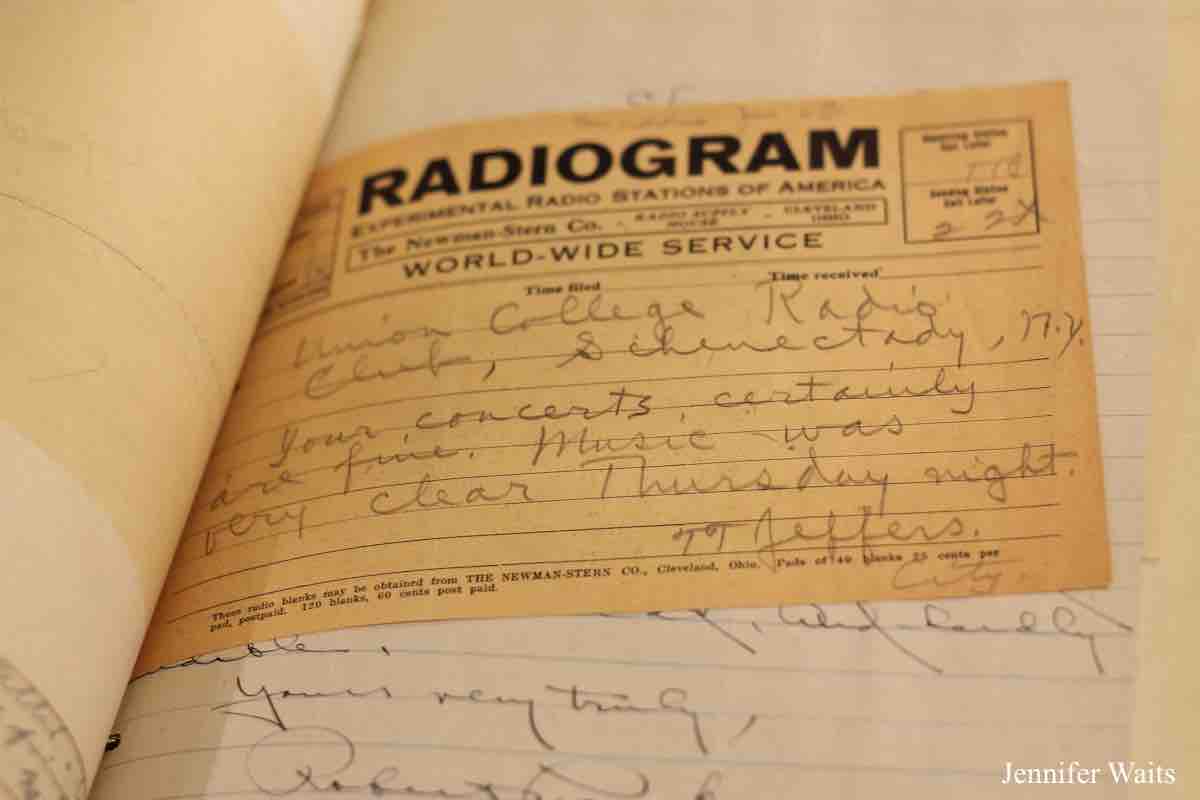 RADIOGRAM
EXPERIMENTAL RADIO STATIONS OF AMERICA
The Newman-Stern Co. - RADIO SUPPLY HOUSE - CLEVELAND OHIO
WORLD-WIDE SERVICE
Station
Call Letter
Sending Station
Call Letter
2 2X
Time filed Time received
Union College Radio
Club, Schenectady, N.Y.
Your concerts certainly
are fine. Music was
very clear Thursday night.
Jeffers.
City.
These radio blanks may be obtained from THE NEWMAN-STERN CO., Cleveland, Ohio. Pads of 40 blanks 25 cents per
pad, postpaid. 120 blanks, 60 cents post paid.
Yours very truly,
Robert
Jennifer Waits